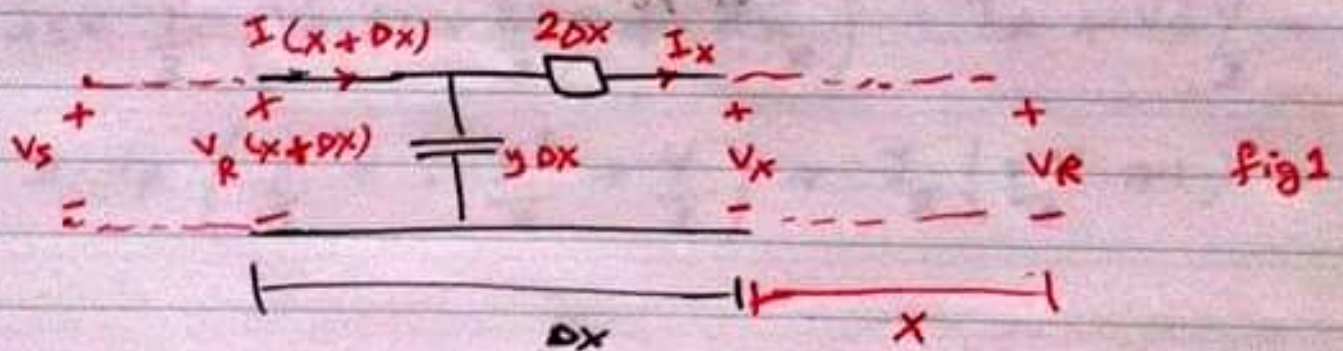 I(x+Dx) 2Dx Ix
+ + + +
Vs VR(x+Dx) yDx Vx VR fig1
- - - -
Dx x